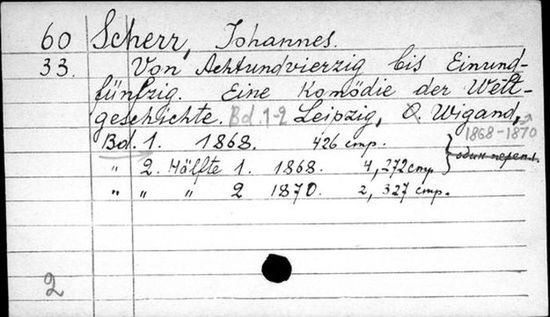 60 Scherr, Johannes.
33. Von Achtundvierzig bis Einund-
fünfzig. Eine Komödie der Welt-
geschichte. Bd. 1-2 Leipzig, O. Wigand,
1868-1870
Bd. 1. 1868. 426 стр.
" 2. Hälfte 1. 1868. 4, 272 стр } один перепл.
" " " 2 1870. 2, 327 стр.
2